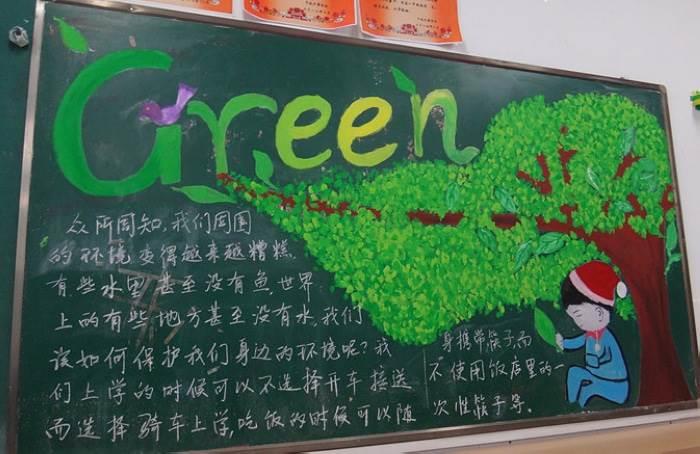 Green
众所周知,我们周围
的环境变得越来越糟糕
有些水里甚至没有鱼,世界
上的有些地方甚至没有水,我们
该如何保护我们身边的环境呢?我
们上学的时候可以不选择开车接送
而选择骑车上学,吃饭的时候可以随
身携带筷子而
不使用饭店里的一
次性筷子等。